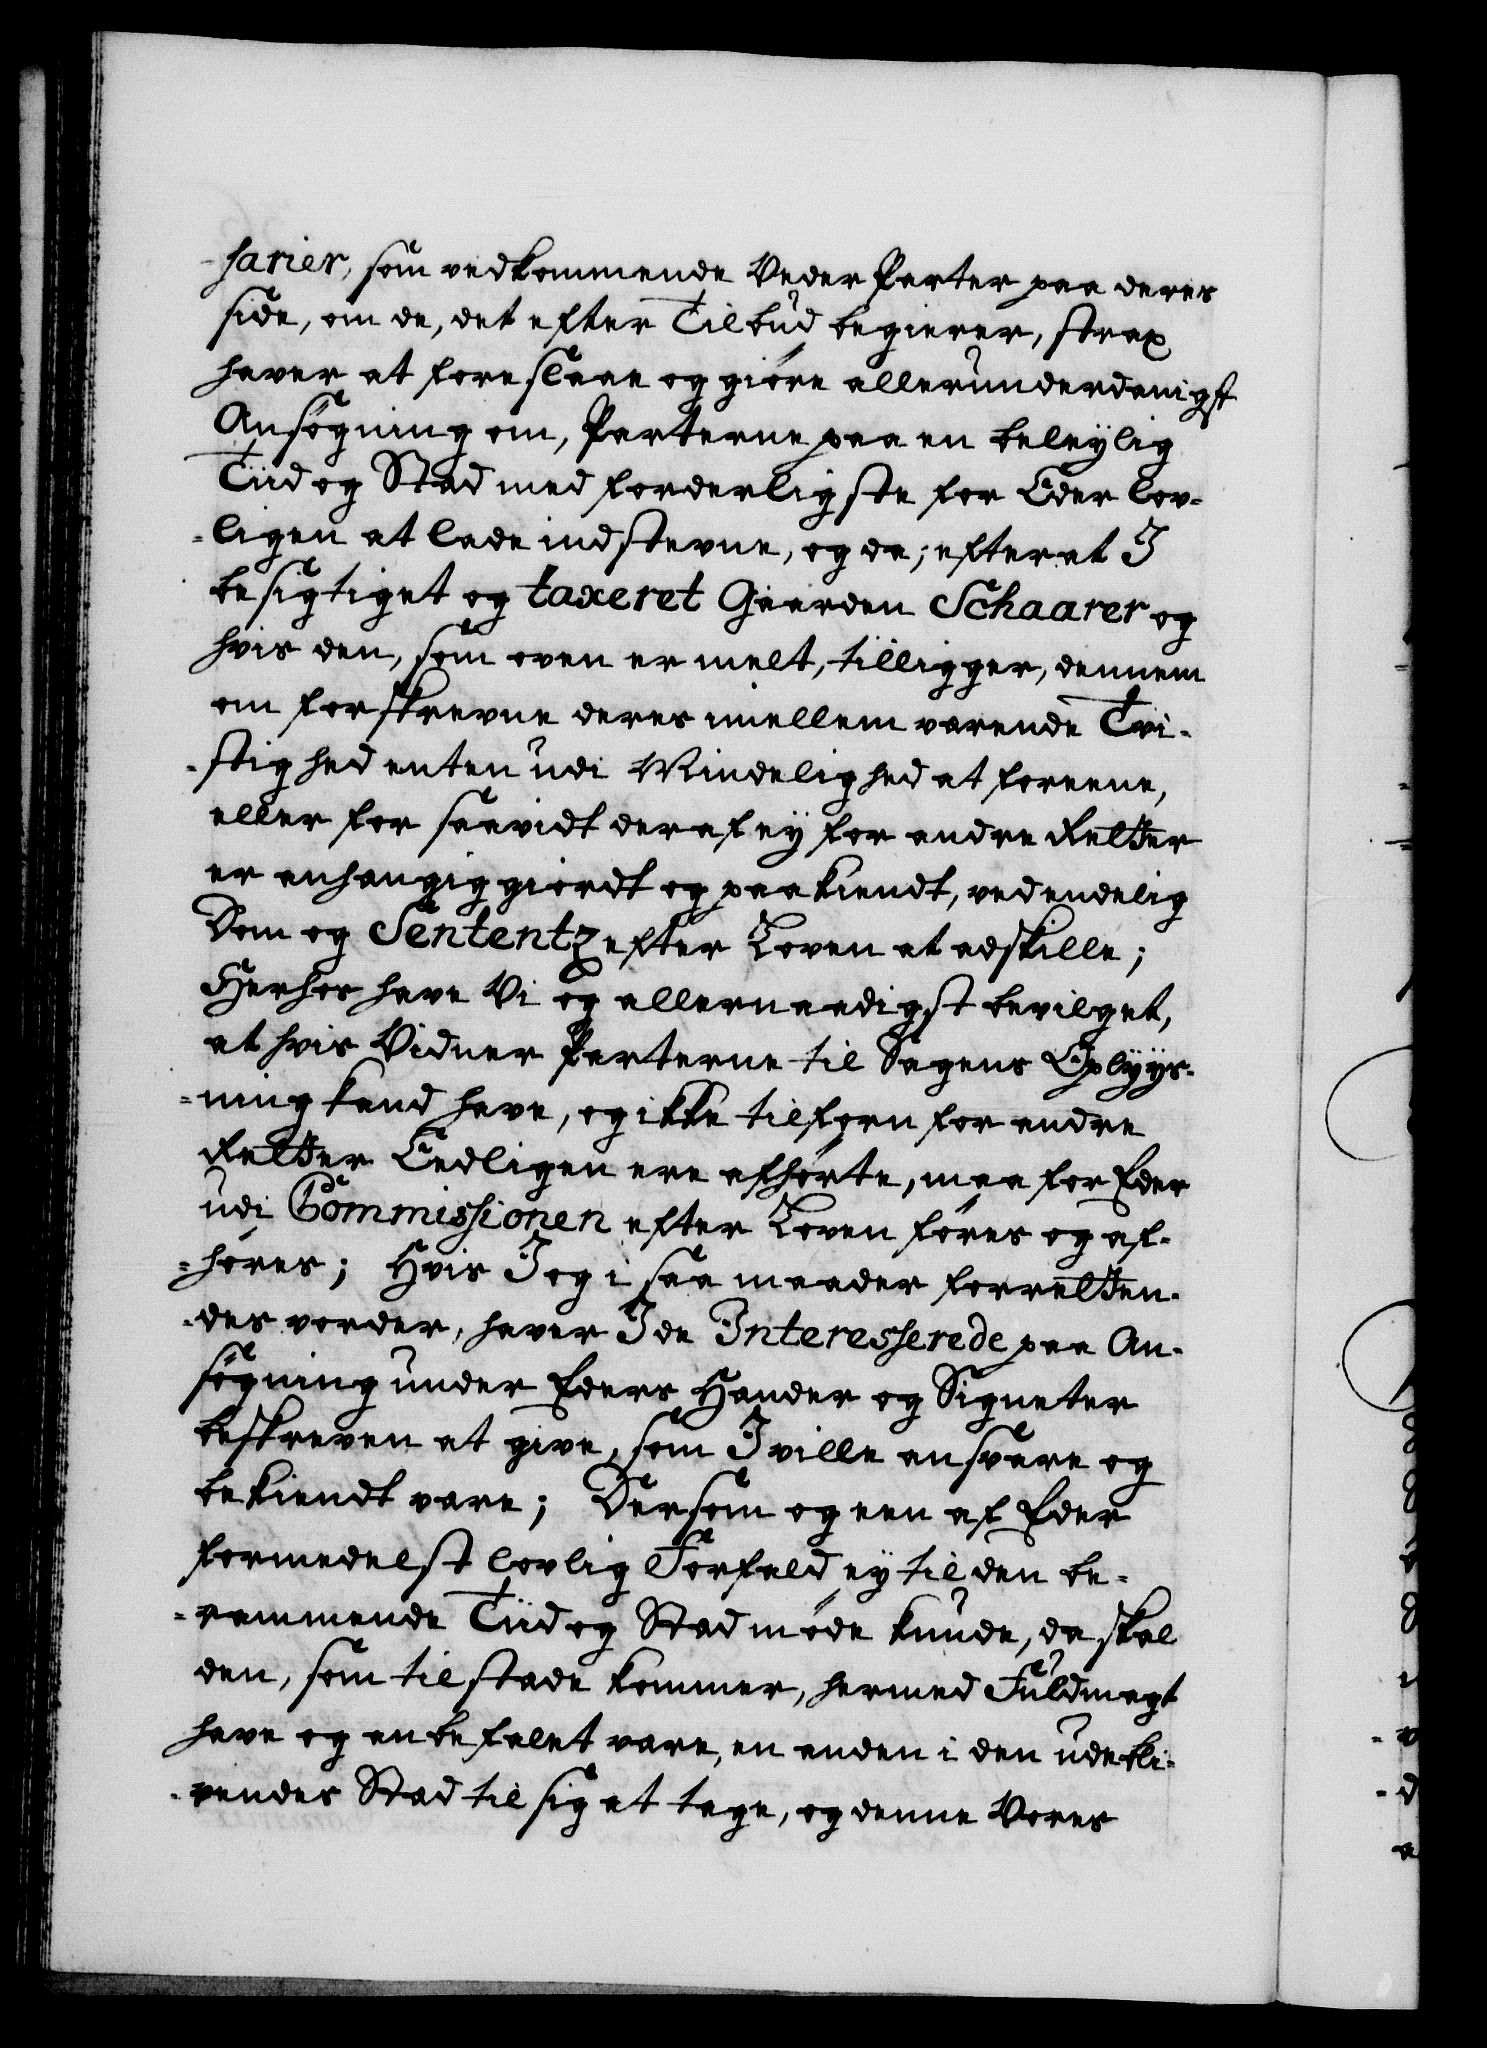 sarier, som vedkommende Veder Parter paa deres
side, om de, det efter Tilbud begierer, strax
haver at foreslaae og giøre allerunderdanigst
Ansøgning om, Parterne paa en beleylig
Tiid og Stad med forderligste for Eder lov-
-ligen at lade indstevne, og da; efter at I
besigtiget og taxeret Gaarden Schaarer og
hvis den, som oven er melt, tilligger, dennem
om forskrevne deres imellem værende Tvi-
-stighed enten udi Mindelighed at foreene,
eller for saavidt deraf ey for andre Retter
er anhængig giordt og paakiendt, ved endelig
Dom og Sententz efter Loven at adskille;
Herhos have Vi og allernaadigst bevilget,
at hvis Vidner Parterne til Sagens Oplyys-
-ning kand have, og ikke tilforn for andre
Retter Eedligen ere afhørte, maa for Eder
udi Commissionen efter Loven føres og af-
-høres; Hvis I og i saa maader forretten-
-des vorder, haver I de Interesserede paa An-
søgning under Eders Hænder og Signeter
beskreven at give, som I ville ansvare og
bekiendt være; Dersom og een af Eder
formedelst lovlig Forfald ey til den be-
-rammende Tiid og Stad møde kunde, da skal
den, som tilstæde kommer, hermed Fuldmagt
have og anbefalet være, en anden i den udebli-
-vendes Stad til sig at tage, og denne Vores